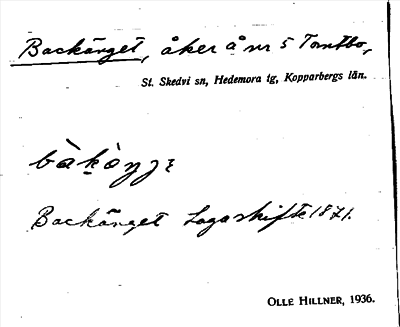 Backänget, åker å nr 5 Tomtbo,
St. Skedvi sn, Hedemora tg, Kopparbergs län.
Backänget Laga skifte 1871.
OLLE HILLNER, 1936.